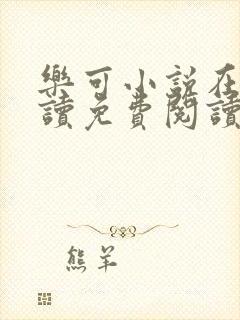 樂可小說在
讀免費閱讀
熊羊